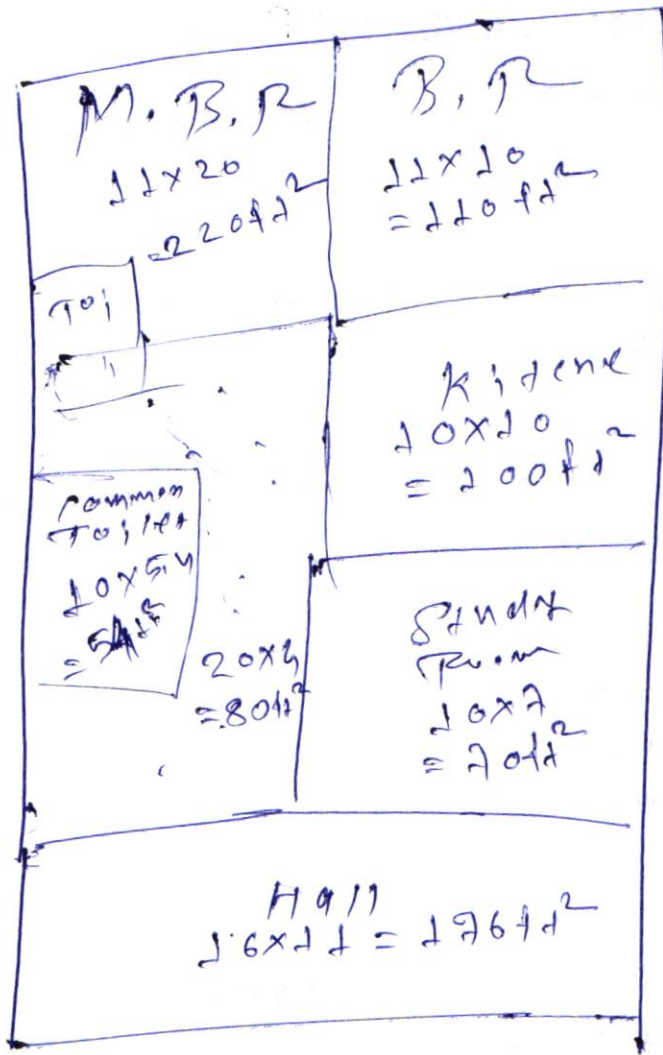 M.B.R
11x20
=220ft²
B.R
11x10
=110ft²
Toi
Kitene
10x10
=100ft²
Common
Toilet
10x5.4
=54ft²
20x4
=80ft²
Study
Room
10x7
=70ft²
Hall
16x11=176ft²